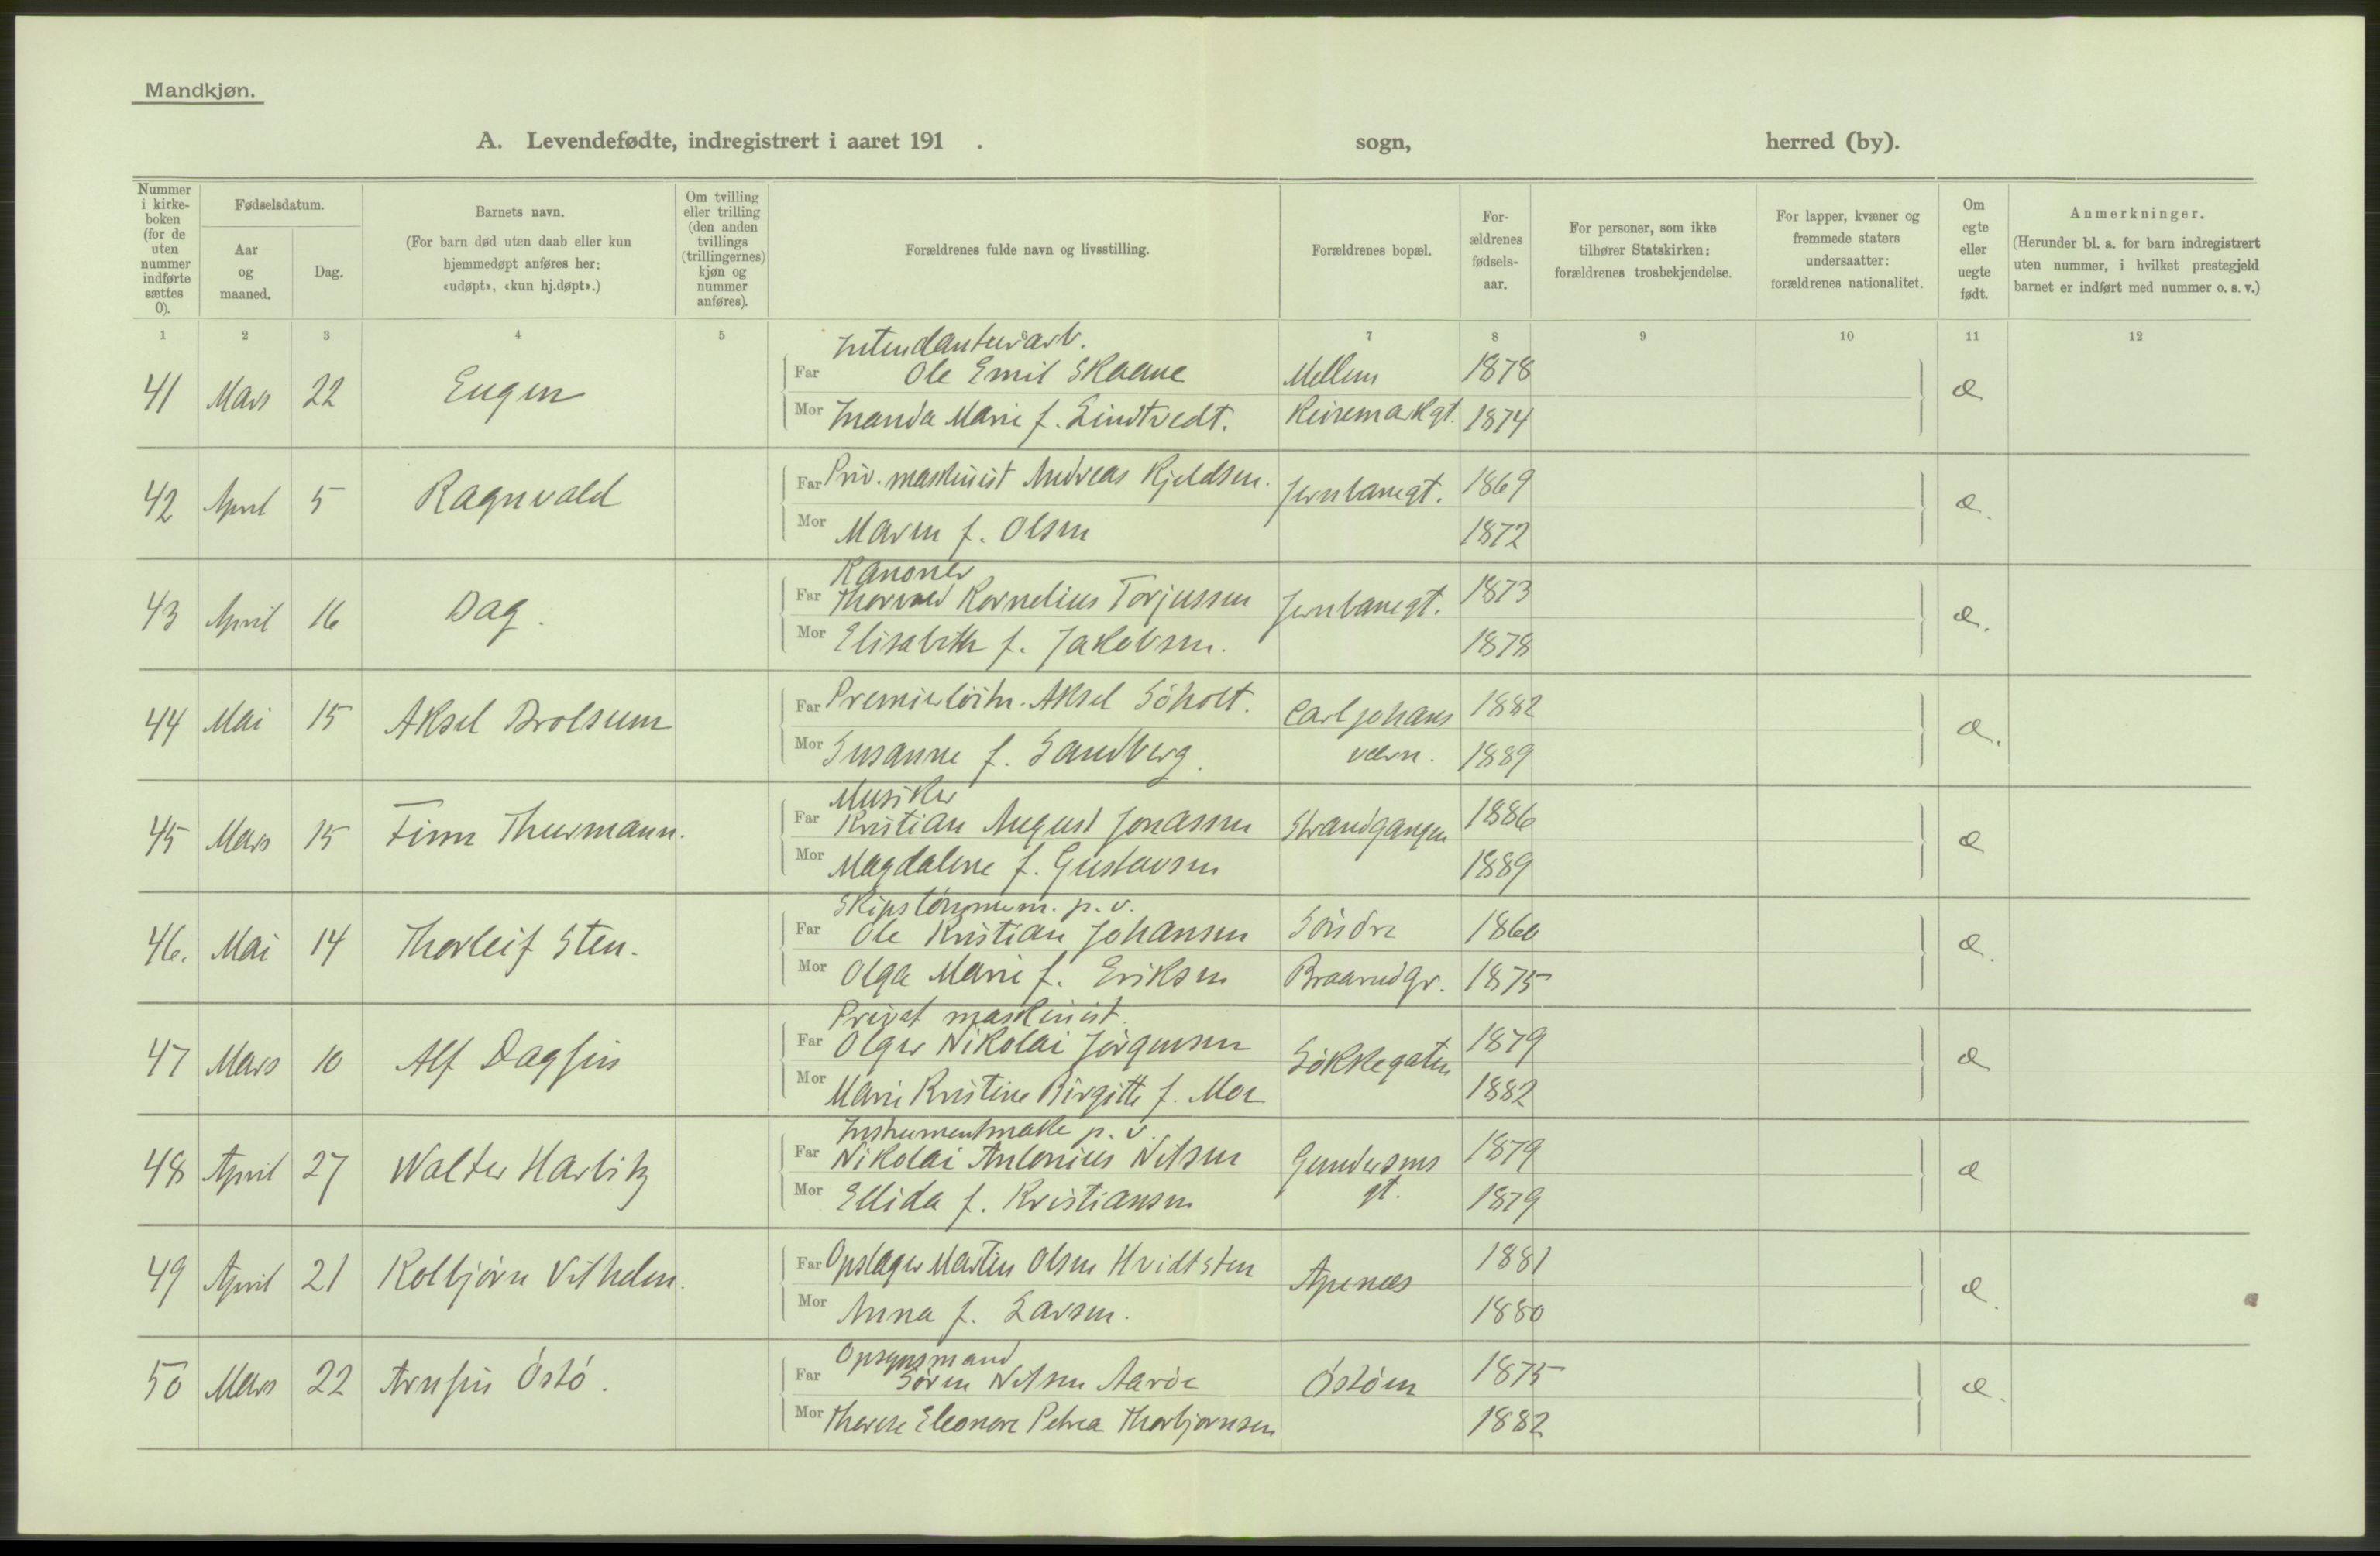 Mandkjøn.
A. Levendefødte, indregistrert i aaret 191 . sogn, herred (by).
Nummer i kirke-boken (for de uten nummer indførte sættes 0).
Fødselsdatum.
Aar og maaned.
Dag.
Barnets navn.
(For barn død uten daab eller kun hjemmedøpt anføres her: «udøpt», «kun hj.døpt».)
Om tvilling eller trilling (den anden tvillings (trillingernes) kjøn og nummer anføres).
Forældrenes fulde navn og livsstilling.
Forældrenes bopæl.
For-ældrenes fødsels-aar.
For personer, som ikke tilhører Statskirken: forældrenes trosbekjendelse.
For lapper, kvæner og fremmede staters undersaatter: forældrenes nationalitet.
Om egte eller uegte født.
Anmerkninger.
(Herunder bl. a. for barn indregistrert uten nummer, i hvilket prestegjeld barnet er indført med nummer o. s. v.)
1 2 3 4 5 6 7 8 9 10 11 12
Intendanturarb.
41 Mars 22 Eugen Far Ole Emil Skaane Mellem 1878 e
Mor Inanda Marie f. Lindtvedt. Keiremarkgt. 1874
42 April 5 Ragnvald Far Priv. maskinist Andreas Kjeldsen. Jernbanegt. 1869 e.
Mor Maren f. Olsen 1872
Kanoner
43 April 16 Dag. Far Thorvald Kornelius Torjussen Jernbanegt. 1873 e.
Mor Elisabeth f. Jakobsen. 1878
44 Mai 15 Aksel Brolsum Far Premierløitn. Aksel Söholt. Carljohans 1882 e.
Mor Susanne f. Sandberg. værn. 1889
Musiker
45 Mars 15 Finn Thurmann. Far Kristian August Jonassen Strandgangen 1886 e
Mor Magdalene f. Gustavsen 1889
Skipstömmerm. p. v.
46. Mai 14 Thorleif Sten. Far Ole Kristian Johansen Söndre 1866 e.
Mor Olga Marie f. Eriksen Braarudgr. 1875
Privat maskinist.
47 Mars 10 Alf Dagfin Far Olger Nikolai Jörgensen Lökkegaten 1879 e
Mor Marie Kristine Birgitte f. Moe 1882
Instrumentmake p. v.
48 April 27 Walter Harbitz Far Nikolai Antonius Nilsen Gundersens 1879 e
Mor Ellida f. Kristiansen gt. 1879
49 April 21 Kolbjörn Vilhelm. Far Opslager Martin Olsen Hvidtsten Apenæs 1881 e.
Mor Anna f. Larsen. 1880
Opsynsmand
50 Mars 22 Arnfin Östö. Far Sören Nilsen Aaröe Östöen 1875 e.
Mor Therese Eleonore Petrea Thorbjørnsen 1882